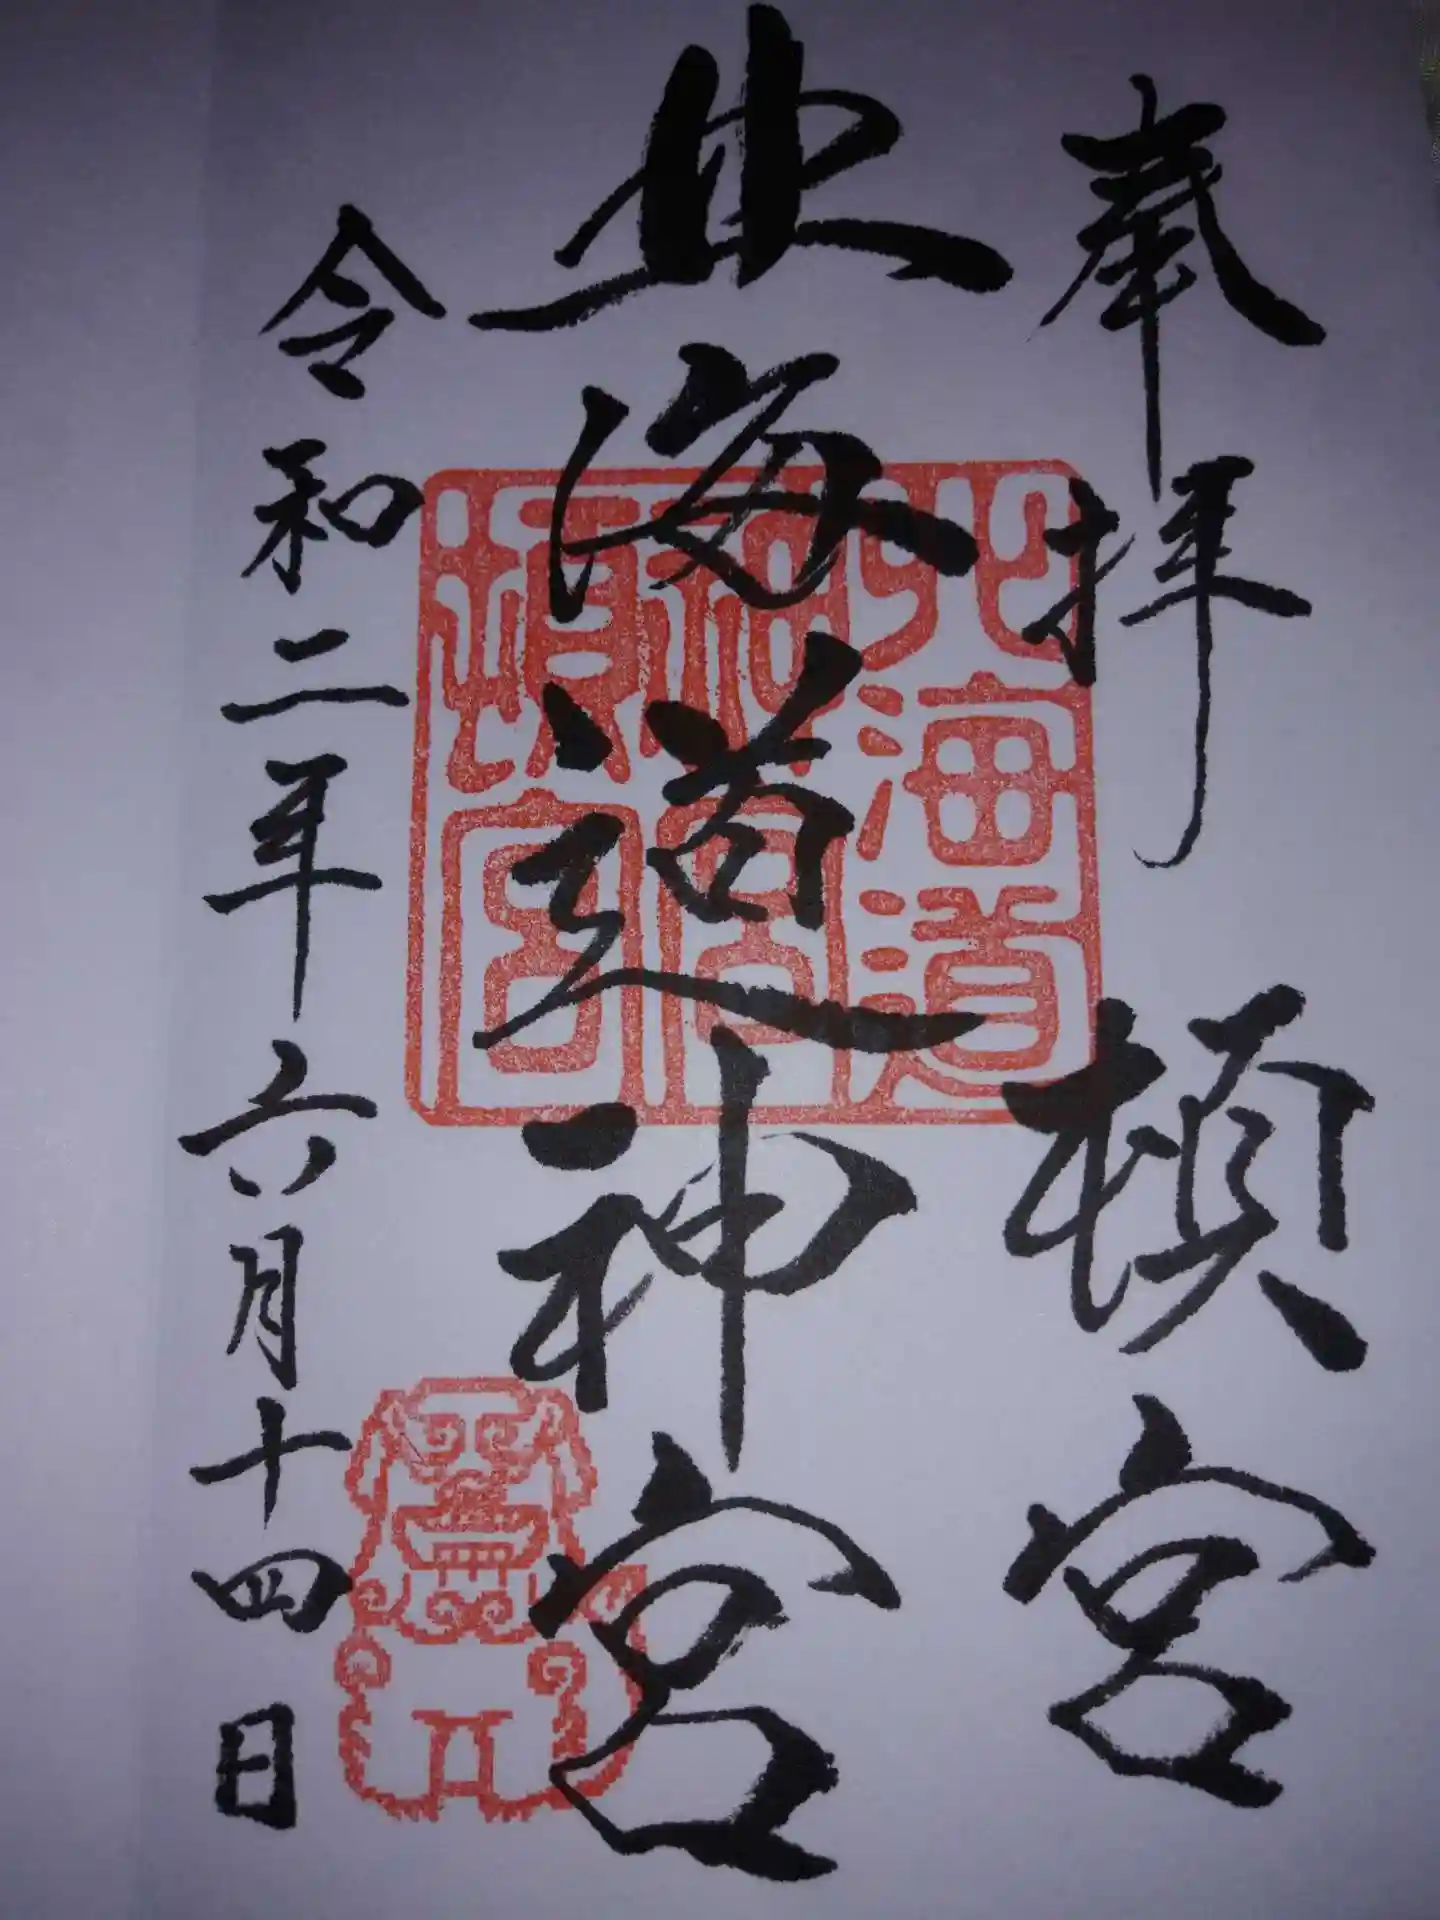 奉拝　頓宮
北海道神宮
令和二年六月十四日
北海道
神宮
頓宮